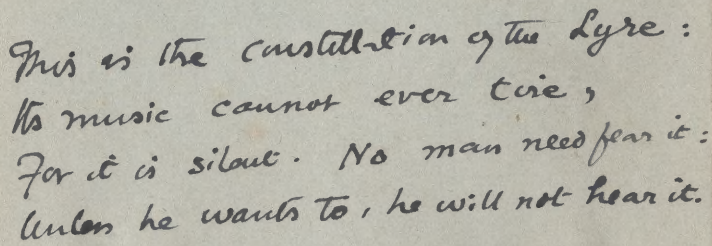 This is the constellation of the Lyre:
Its music cannot ever tire,
For it is silent. No man need fear it:
Unless he wants to, he will not hear it.